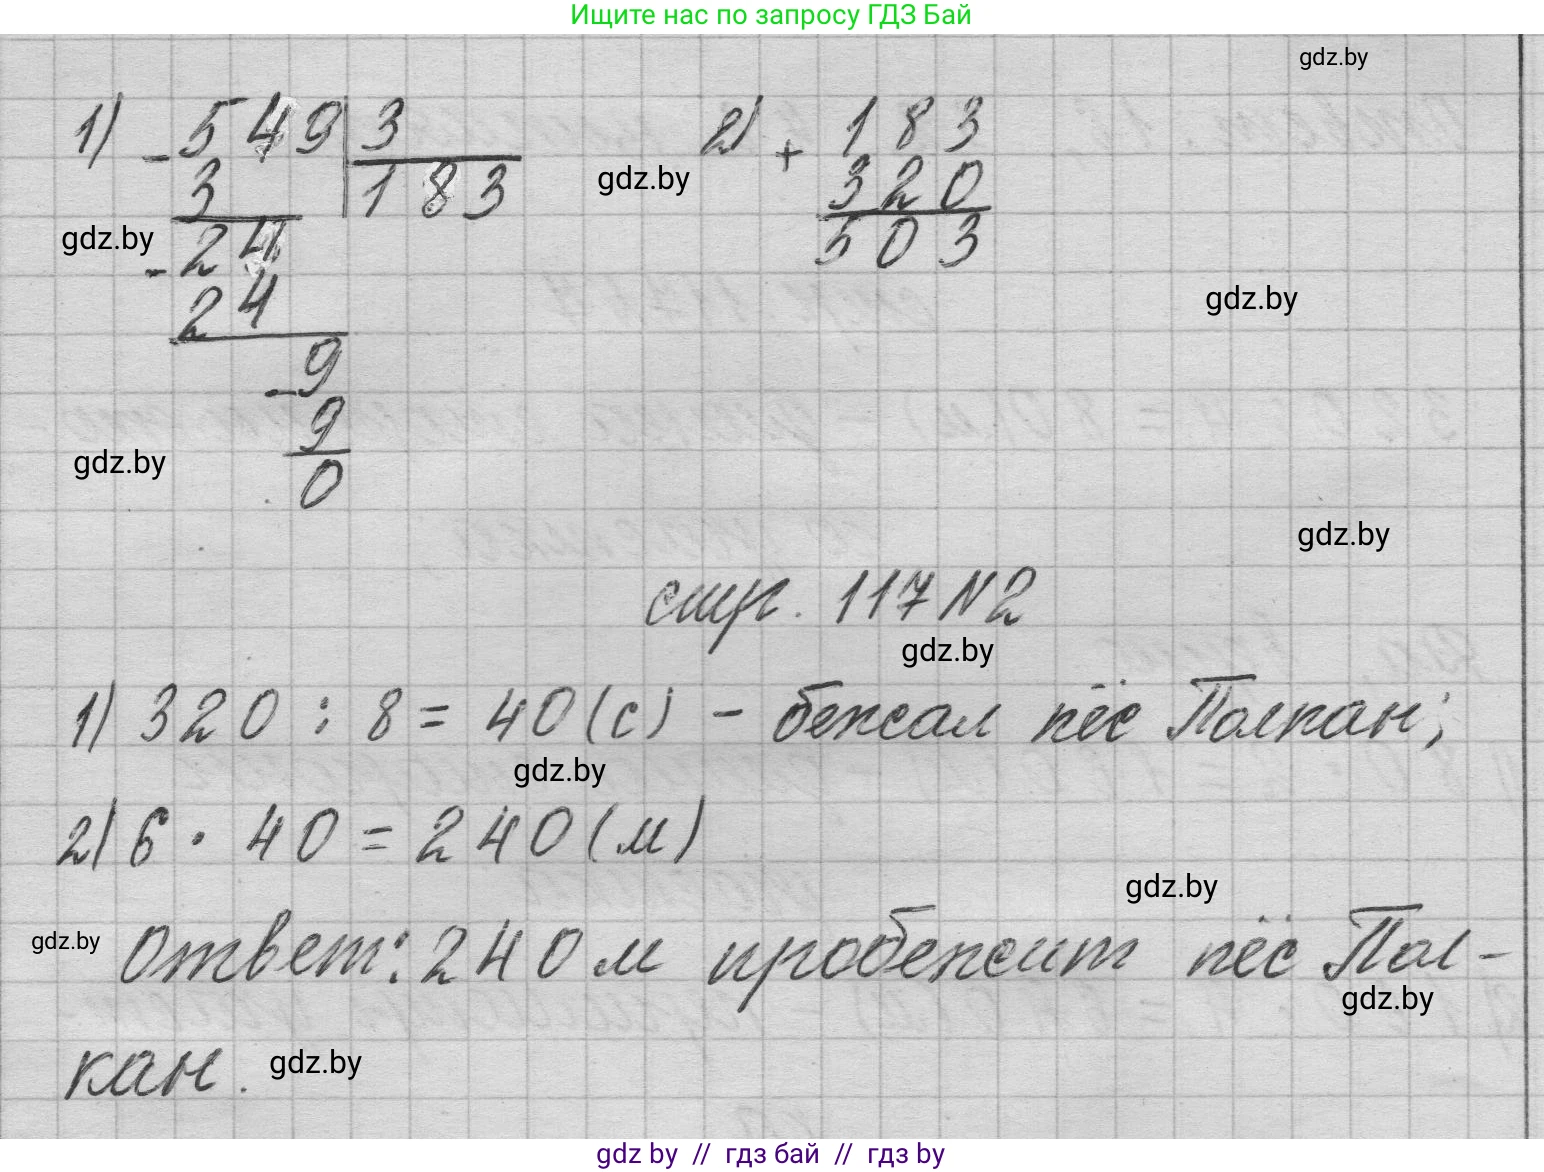 Ищите нас по запросу ГДЗ Бай
gdz.by
1) - 549 | 3
3 | 183
gdz.by
- 24
24
- 9
9
0
gdz.by
gdz.by
2) + 183
320
503
gdz.by
gdz.by
стр. 117 N2
gdz.by
1) 320 : 8 = 40 (с) - бежал пёс Полкан;
gdz.by
2) 6 · 40 = 240 (м)
gdz.by
gdz.by
Ответ: 240 м пробежит пёс Пол-
gdz.by
кан.
gdz.by
gdz by // гдз бай // гдз by